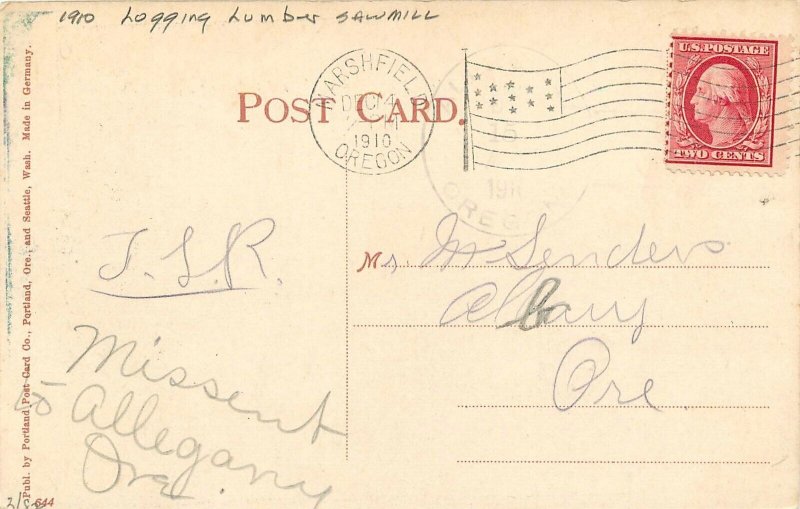 1910 Logging Lumber SAWMILL
POST CARD.
MARSHFIELD
DEC 4
1910
OREGON
OREGON
U.S. POSTAGE
TWO CENTS
Publ. by Portland Post Card Co., Portland, Ore. and Seattle, Wash. Made in Germany.
Mr. M Senders
Albany
Ore.
Missent
to Allegany
Ore
644